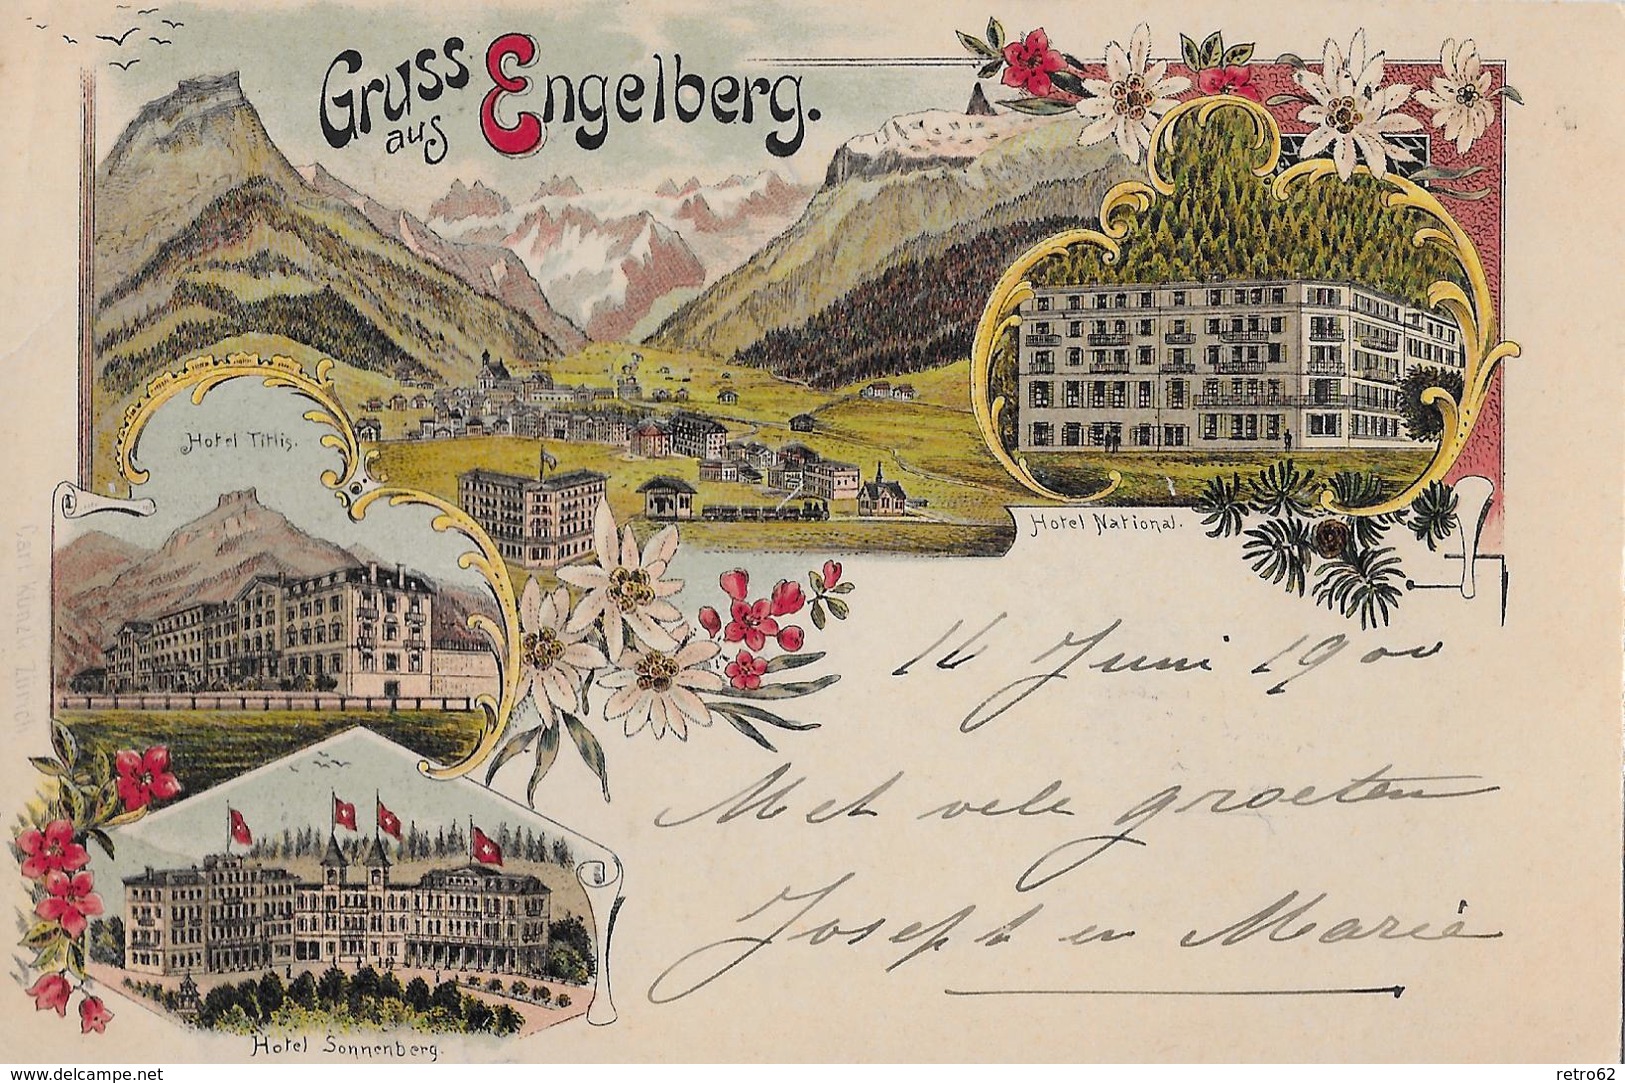 Gruss
aus Engelberg.
Hotel Titlis.
Hotel National.
Carl Künzli Zürich
14 Juni 1900
Met vele groeten
Joseph en Marie
Hotel Sonnenberg.
delcampe.net
retro62